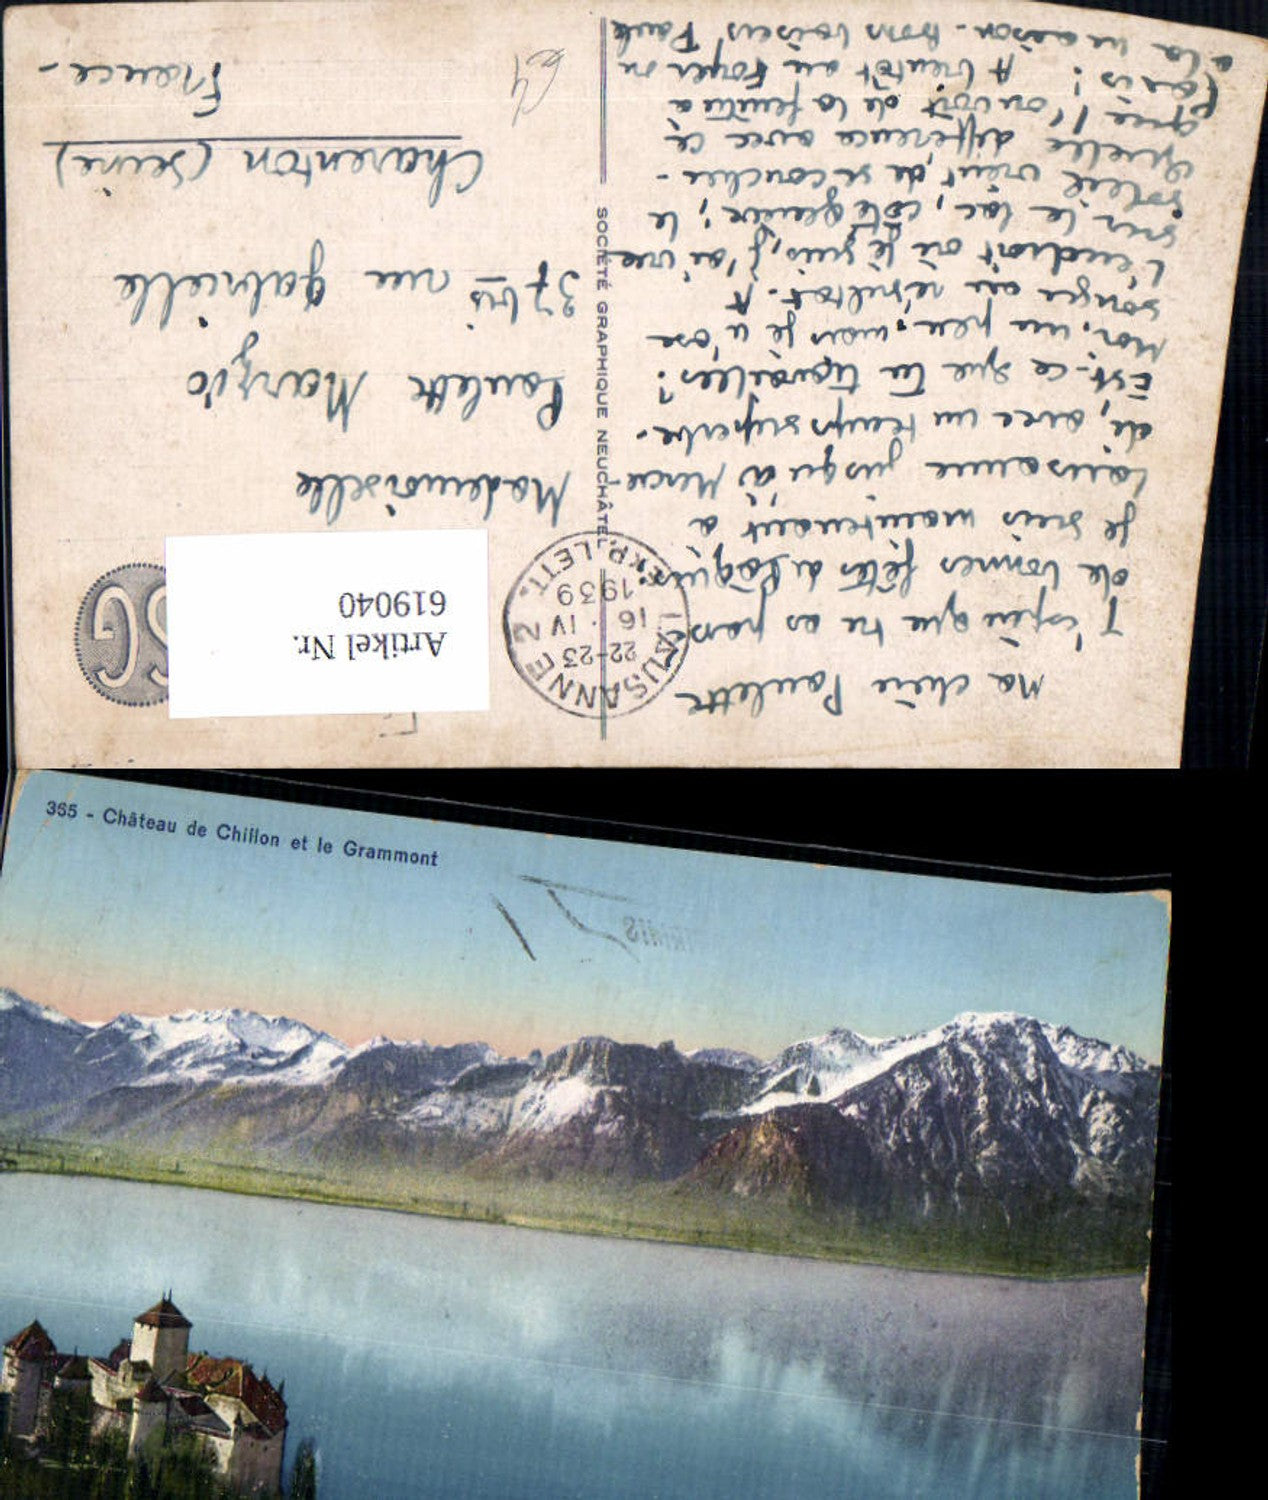 Ma chère Paulette
J'espère que tu as passé
de bonnes fêtes de Pâques.
Je suis maintenant à
Lausanne jusqu'à Mercre-
di, avec un temps superbe.
Est-ce que tu travailles?
Moi, un peu, mais je n'ose
songer au résultat. A
l'endroit où je suis, j'ai vue
sur le lac, côté ; le
soleil vient de se coucher.
Quelle différence avec ce
que l'on voit de la fenêtre à
Paris! A bientôt au Foyer ou
à la maison - bons baisers Paule
SOCIÉTÉ GRAPHIQUE NEUCHÂTEL
LAUSANNE 2 EXP. LETT.
22-23
16. IV
1939
Mademoiselle
Paulette
37 bis rue Gabrielle
Charenton (Seine)
France -
Artikel Nr.
619040
SG
365 - Château de Chillon et le Grammont